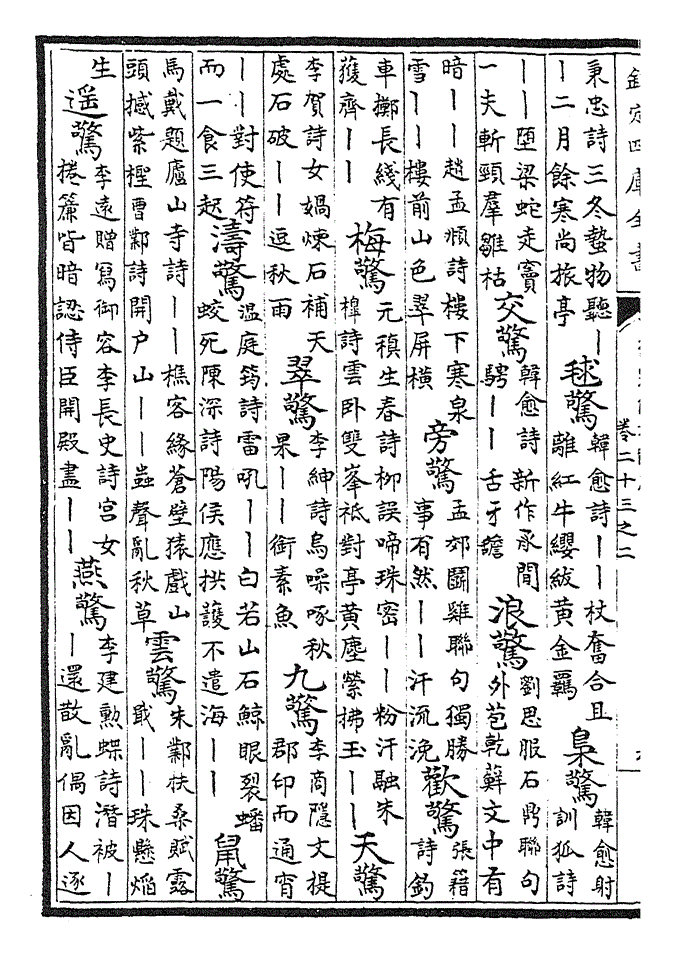 欽定四庫全書 卷二十三之二
秉忠詩三冬蟄物聽丨丨二月餘寒尚旅亭 毬驚 韓愈詩丨丨杖奮合且離紅牛纓紱黄金羈 梟驚 韓愈射訓狐詩
丨丨墮梁蛇走竇一夫斬頸羣雛枯 交驚 韓愈詩新作承間騁丨丨舌牙 浪驚 劉思服石鼎聯句外苞乾蘚文中有
暗丨丨趙孟頫詩樓下寒泉雪丨丨樓前山色翠屏横 旁驚 孟郊鬬雞聯句獨勝事有然丨丨汗流浼 歡驚 張籍詩釣
車擲長綫有獲齊丨丨 梅驚 元稹生春詩柳誤啼珠密丨丨粉汗融朱槔詩雲卧雙峯祗對亭黄塵縈拂玉丨丨 天驚
李賀詩女媧煉石補天處石破丨丨逗秋雨 翠驚 李紳詩烏噪啄秋果丨丨銜素魚 九驚 李商隱文提郡印而通宵
丨丨對使符而一食三起 濤驚 温庭筠詩雷吼丨丨白若山石鯨眼裂蟠蛟死陳深詩陽侯應拱護不遣海丨丨 鼠驚
馬戴題廬山寺詩丨丨樵客緣蒼壁猿戲山頭撼紫檉曹鄴詩開户山丨丨蟲聲亂秋草 雲驚 朱鄴扶桑賦露戢丨丨珠懸熖
生 遥驚 李遠贈寫御容李長史詩宫女捲簾皆暗認侍臣開殿盡丨丨 燕驚 李建勲蝶詩潛被丨丨還散亂偶因人逐